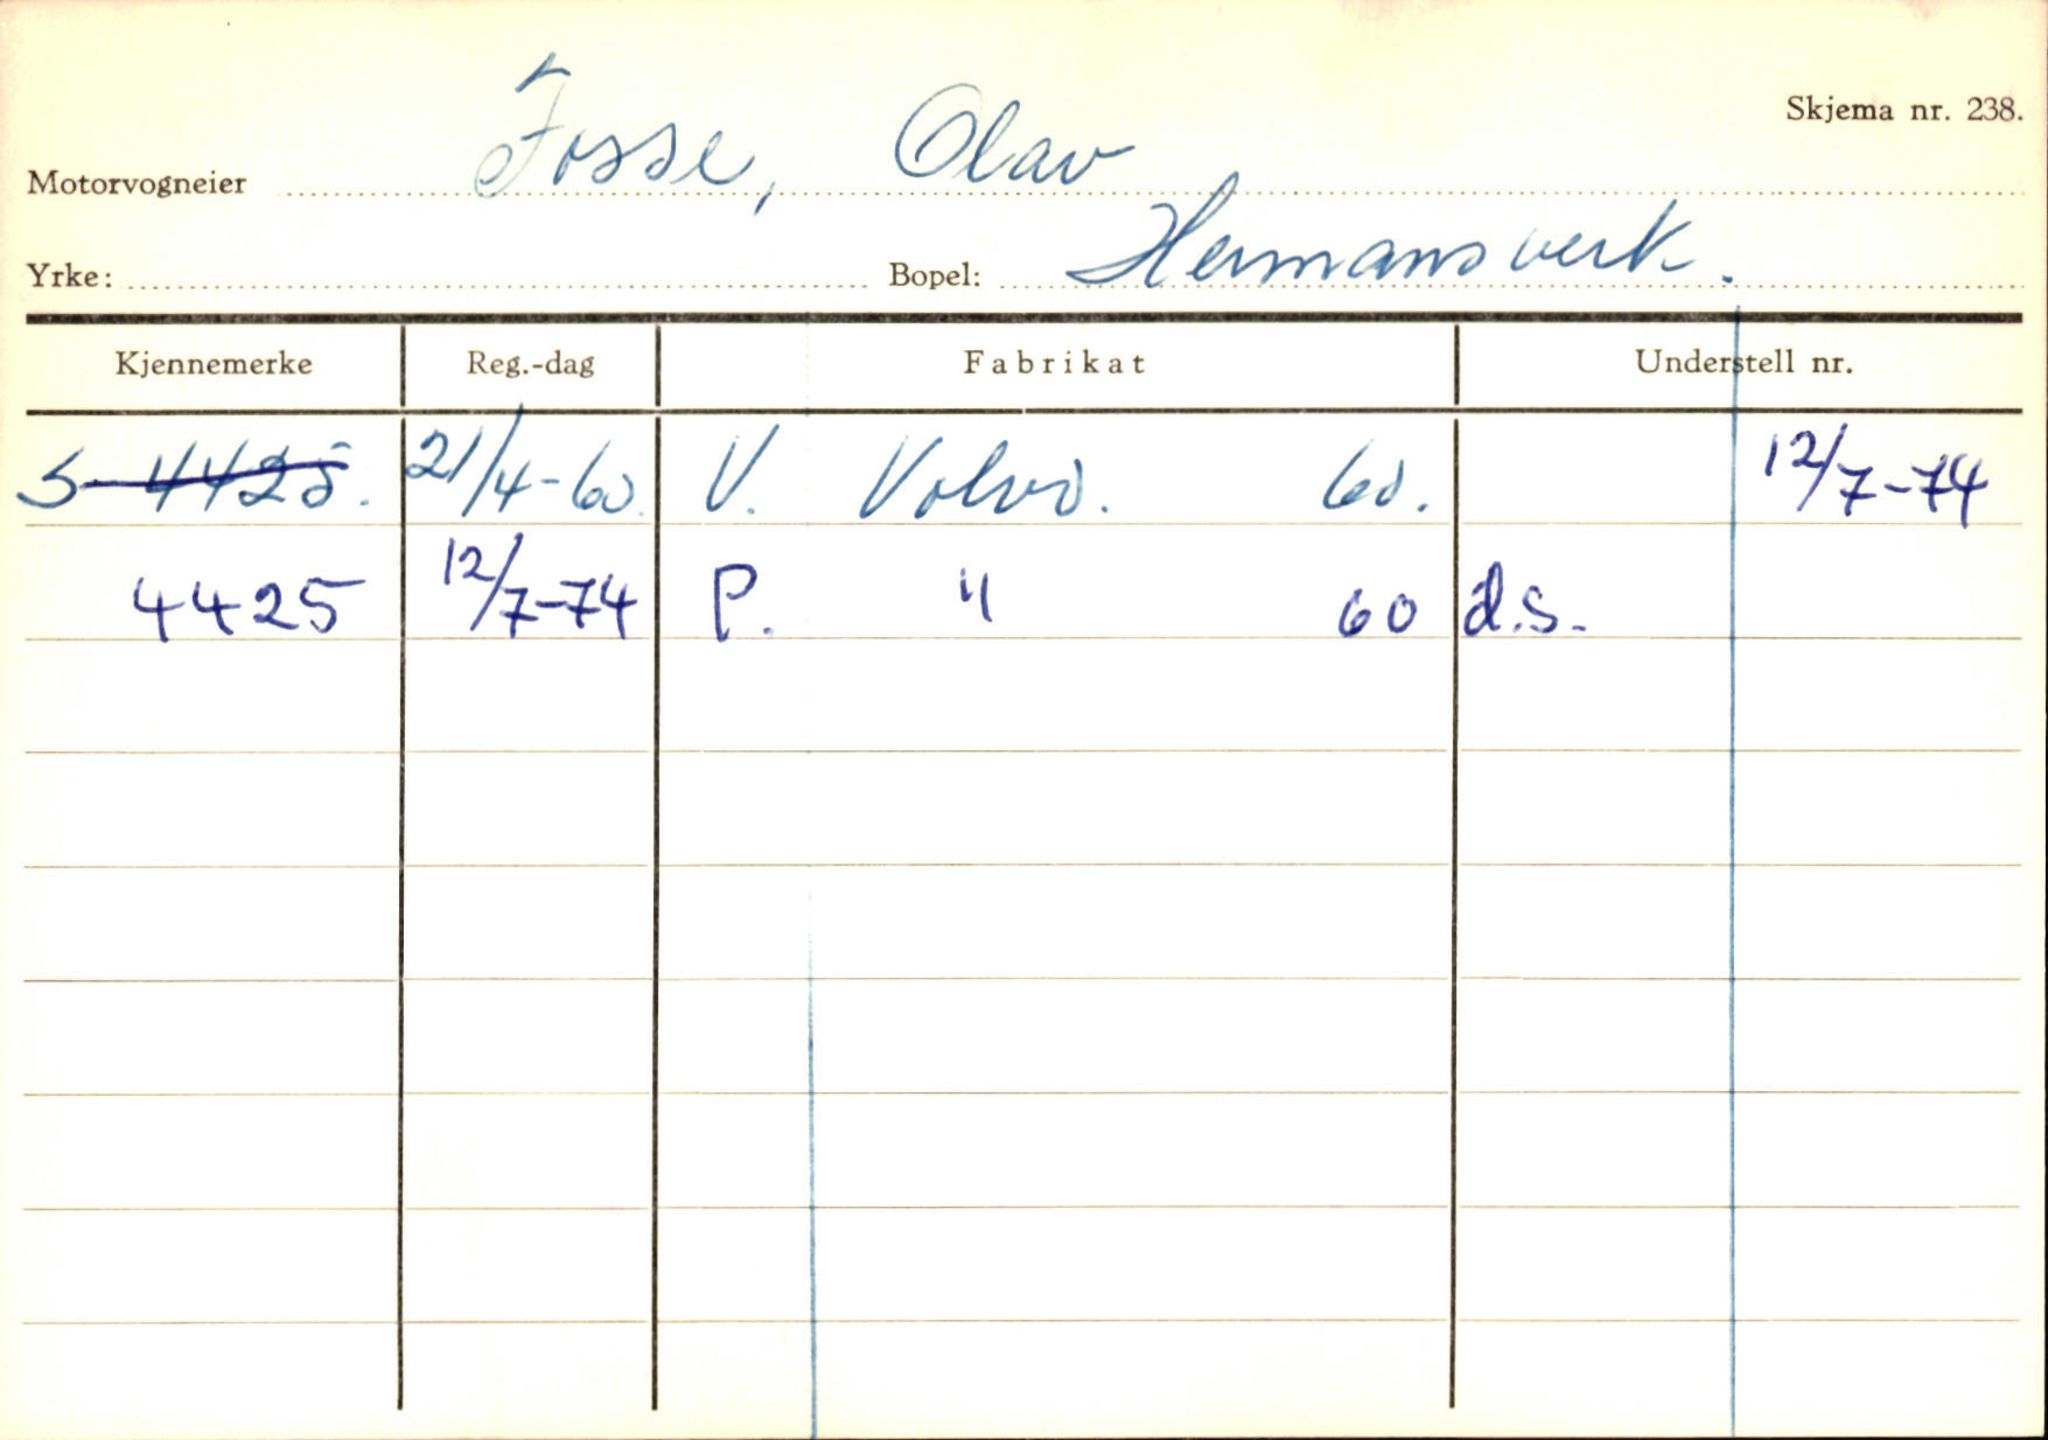 Skjema nr. 238.
Motorvogneier Fosse, Olav
Yrke: Bopel: Hermansverk.
Kjennemerke Reg.-dag Fabrikat Understell nr.
S-4425. 21/4-60. V. Volvo. 60. 12/7-74
4425 12/7-74 P. " 60 d.s.